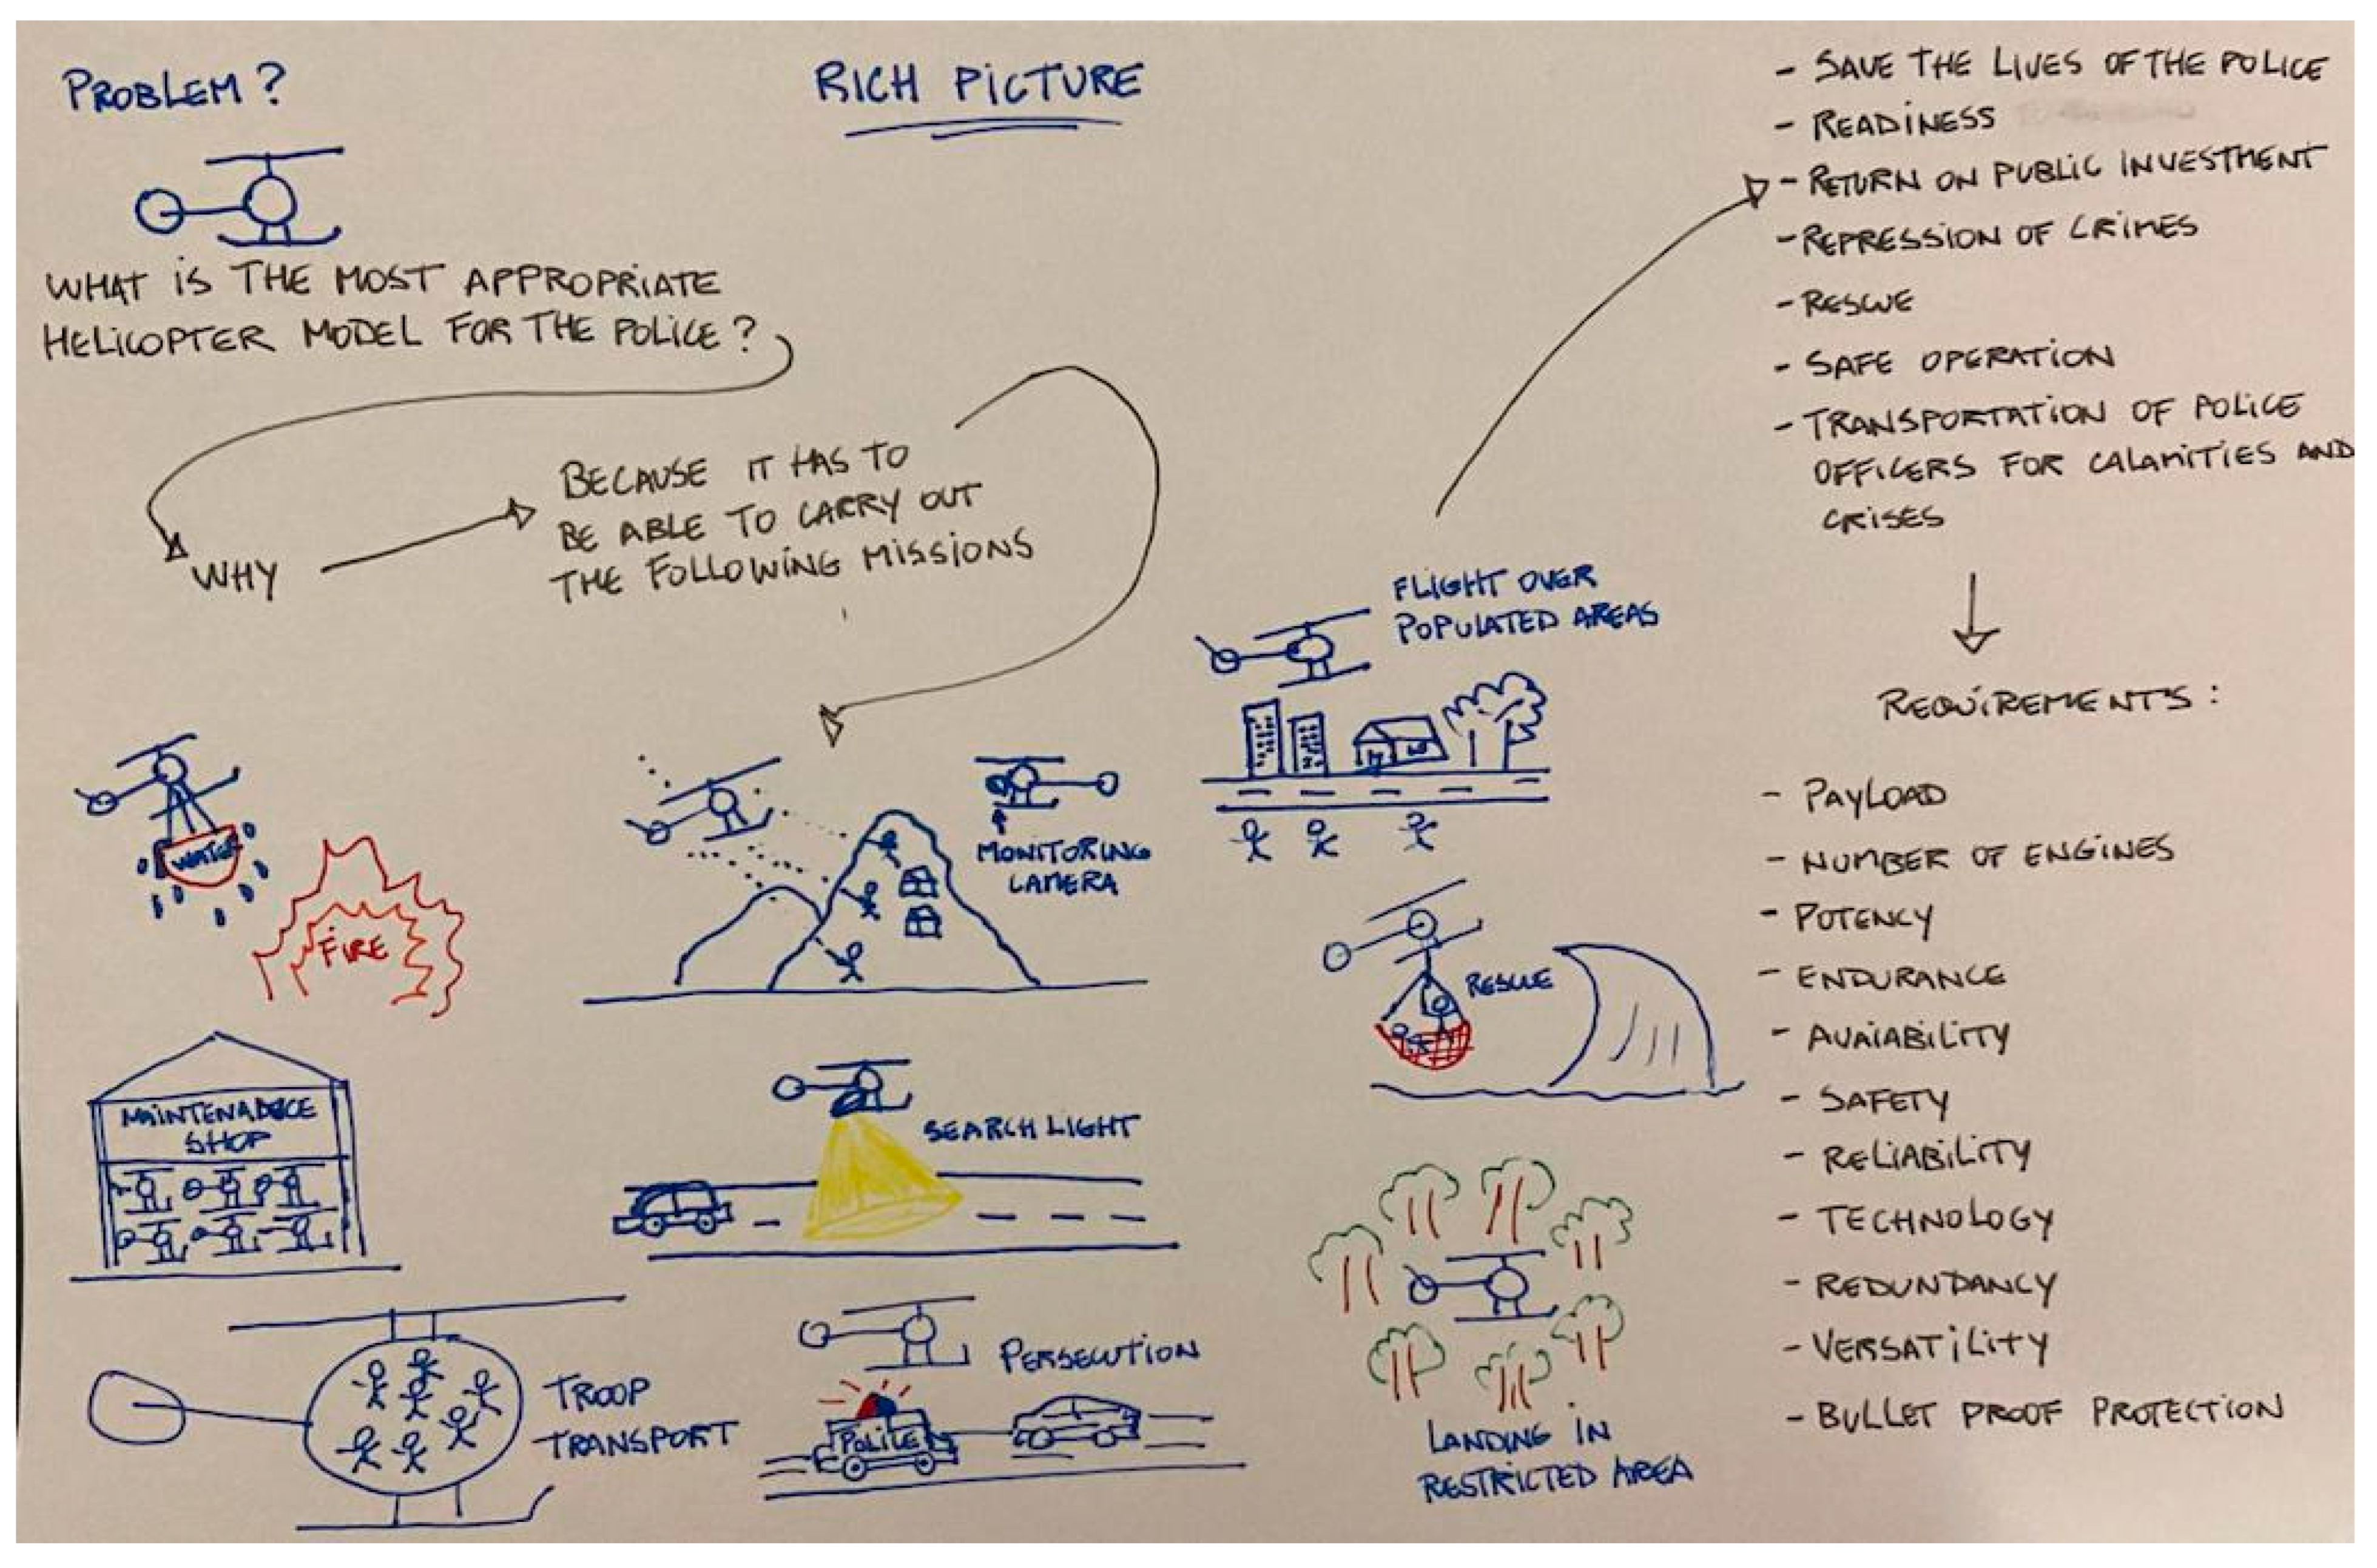 PROBLEM?
RICH PICTURE
WHAT IS THE MOST APPROPRIATE
HELICOPTER MODEL FOR THE POLICE?
WHY
BECAUSE IT HAS TO
BE ABLE TO CARRY OUT
THE FOLLOWING MISSIONS
WATER
FIRE
MONITORING
CAMERA
FLIGHT OVER
POPULATED AREAS
RESCUE
MAINTENANCE
SHOP
SEARCH LIGHT
TROOP
TRANSPORT
PERSECUTION
POLICE
LANDING IN
RESTRICTED AREA
- SAVE THE LIVES OF THE POLICE
- READINESS
- RETURN ON PUBLIC INVESTMENT
- REPRESSION OF CRIMES
- RESCUE
- SAFE OPERATION
- TRANSPORTATION OF POLICE
OFFICERS FOR CALAMITIES AND
CRISES
REQUIREMENTS:
- PAYLOAD
- NUMBER OF ENGINES
- POTENCY
- ENDURANCE
- AVAIABILITY
- SAFETY
- RELIABILITY
- TECHNOLOGY
- REDUNDANCY
- VERSATILITY
- BULLET PROOF PROTECTION